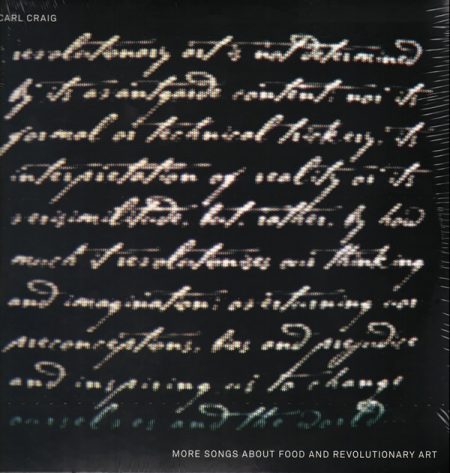 CARL CRAIG
revolutionary art is not determined
by its avantgarde content; nor its
formal or technical trickery, its
interpretation of reality or its
verisimilitude, but, rather, by how
much it revolutionises our thinking
and imagination; overturning our
preconceptions, bias and prejudice
and inspiring us to change
ourselves and the world
MORE SONGS ABOUT FOOD AND REVOLUTIONARY ART